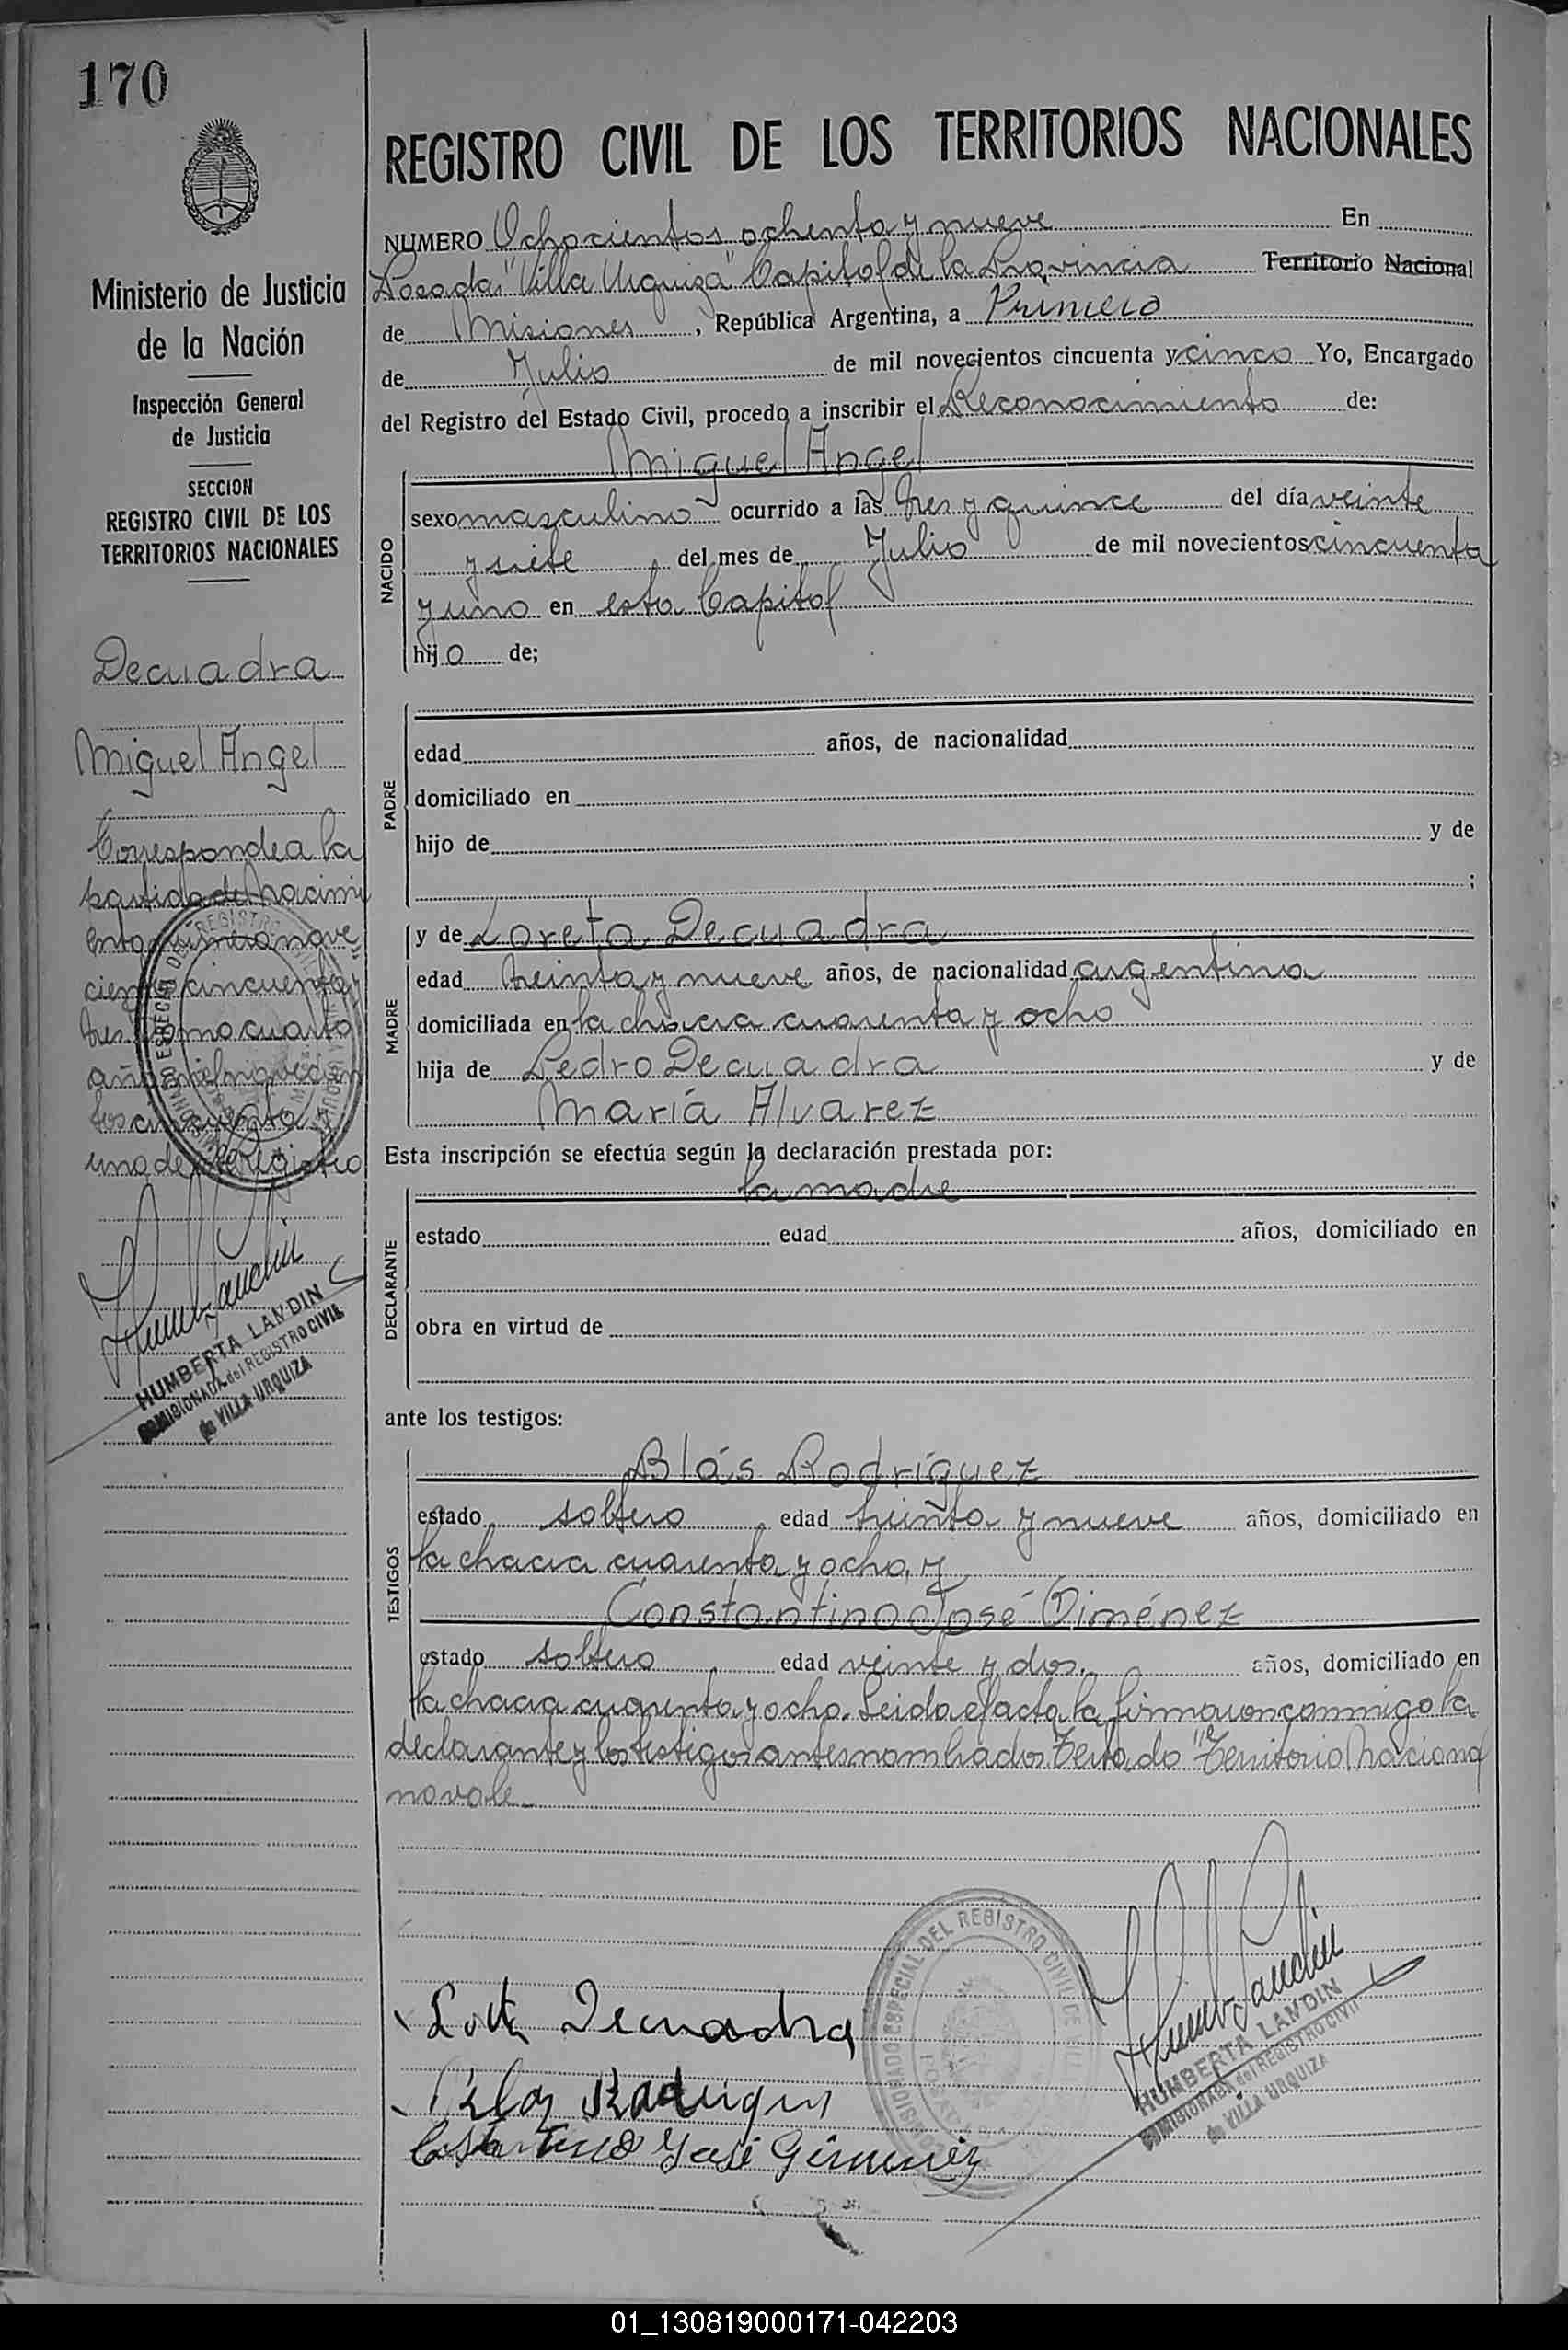 170
Ministerio de Justicia
de la Nación
Inspección General
de Justicia
SECCION
REGISTRO CIVIL DE LOS
TERRITORIOS NACIONALES
Decuadra
Miguel Angel
Corresponde a la
partida de nacimi
ento número nove
cientos cincuenta y
tres tomo cuarto
año mil novecien
tos cincuenta y
uno de este registro
HUMBERTA LANDIN
COMISIONADA del REGISTRO CIVIL
de VILLA URQUIZA
REGISTRO CIVIL DE LOS TERRITORIOS NACIONALES
NUMERO Ochocientos ochenta y nueve En
Posadas "Villa Urquiza" Capital de la Provincia Territorio Nacional
de Misiones, República Argentina, a Primero
de Julio de mil novecientos cincuenta y cinco Yo, Encargado
del Registro del Estado Civil, procedo a inscribir el Reconocimiento de:
Miguel Angel
NACIDO
sexo masculino ocurrido a las tres y quince del día veinte
y siete del mes de Julio de mil novecientos cincuenta
y uno en esta Capital
hijo de;
PADRE
edad años, de nacionalidad
domiciliado en
hijo de y de
;
MADRE
y de Loreta Decuadra
edad treinta y nueve años, de nacionalidad argentina
domiciliada en la chacra cuarenta y ocho
hija de Pedro Decuadra y de
María Alvarez
Esta inscripción se efectúa según la declaración prestada por:
la madre
DECLARANTE
estado edad años, domiciliado en
obra en virtud de
ante los testigos:
TESTIGOS
Blás Rodríguez
estado soltero edad treinta y nueve años, domiciliado en
la chacra cuarenta y ocho, y
Constantino José Giménez
estado soltero edad veinte y dos, años, domiciliado en
la chacra cuarenta y ocho. Leida el acta, la firmaron conmigo la
declarante y los testigos antes nombrados. Testado "Territorio Nacional
no vale
Decuadra
Blas Rodrigues
José Gimenez
DEL REGISTRO CIVIL DE
HUMBERTA LANDIN
COMISIONADA del REGISTRO CIVIL
de VILLA URQUIZA
01_130819000171-042203